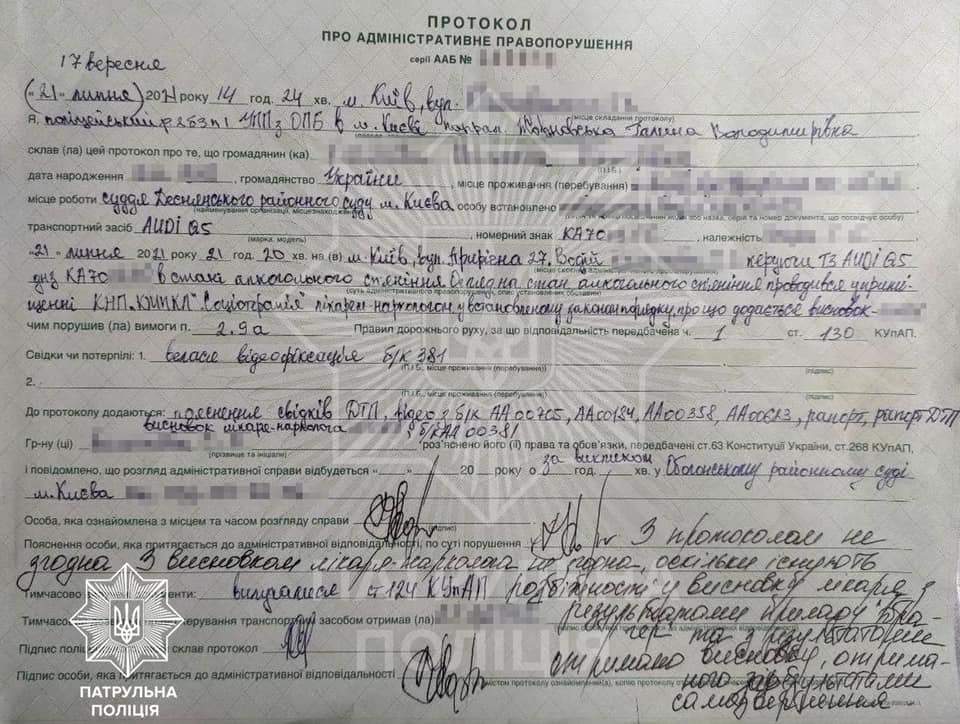 ПРОТОКОЛ
ПРО АДМІНІСТРАТИВНЕ ПРАВОПОРУШЕННЯ
серії ААБ №
17 вересня
("21" липня) 2021 року 14 год. 24 хв. м. Київ, вул.
(місце складання протоколу)
Я, поліцейський УПП з ОПБ в м. Києві Галина Володимирівна
склав (ла) цей протокол про те, що громадянин (ка)
(П.І.Б.)
дата народження , громадянство України , місце проживання (перебування)
місце роботи суддя Деснянського районного суду м. Києва особу встановлено
(найменування організації, місцезнаходження)
транспортний засіб AUDI Q5 , номерний знак КА70 , належність
(марка, модель)
"21" липня 2021 року 21 год. 20 хв. на (в) м. Київ, вул. 27, Водій керуючи ТЗ AUDI Q5
днз КА70 в стані алкогольного сп'яніння Огляд на стан алкогольного сп'яніння проводився у примі-
щенні КНП "Соціотерапія" лікарем наркологом, у встановленому законом порядку, про що додається висновок
чим порушив (ла) вимоги п. 2.9а Правил дорожнього руху, за що відповідальність передбачена ч. 1 ст. 130 КУпАП.
Свідки чи потерпілі: 1. відеофіксація б/к 381
(П.І.Б., місце проживання (перебування)) (підпис)
2.
(П.І.Б., місце проживання (перебування)) (підпис)
До протоколу додаються: пояснення свідків ДТП, відео з б/к АА00705, АА00184, АА00358, АА00613, рапорт, рапорт ДТП
висновок лікаря-нарколога з б/к АА 00381
Гр-ну (ці) роз'яснено його (її) права та обов'язки, передбачені ст.63 Конституції України, ст.268 КУпАП,
(прізвище та ініціали)
за викликом
і повідомлено, що розгляд адміністративної справи відбудеться " " 20 року о год. хв. у Оболонському районному суді
м. Києва
Особа, яка ознайомлена з місцем та часом розгляду справи
(підпис)
Пояснення особи, яка притягається до адміністративної відповідальності, по суті порушення З протоколом не
згодна З висновком лікаря-нарколога не згодна, оскільки існують
Тимчасово вилучалися ст 124 КУпАП розбіжності у висновку лікаря з
результатами приладу "Дра-
Тимчасо керування транспортним засобом отримав (ла)
гер та з результатами
Підпис полі склав протокол
отримано висновку, отрима-
ного результатами
Підпис особи, яка притягається до адміністративної відповідальності
самозвернення
ПОЛІЦІЯ
ПАТРУЛЬНА
ПОЛІЦІЯ